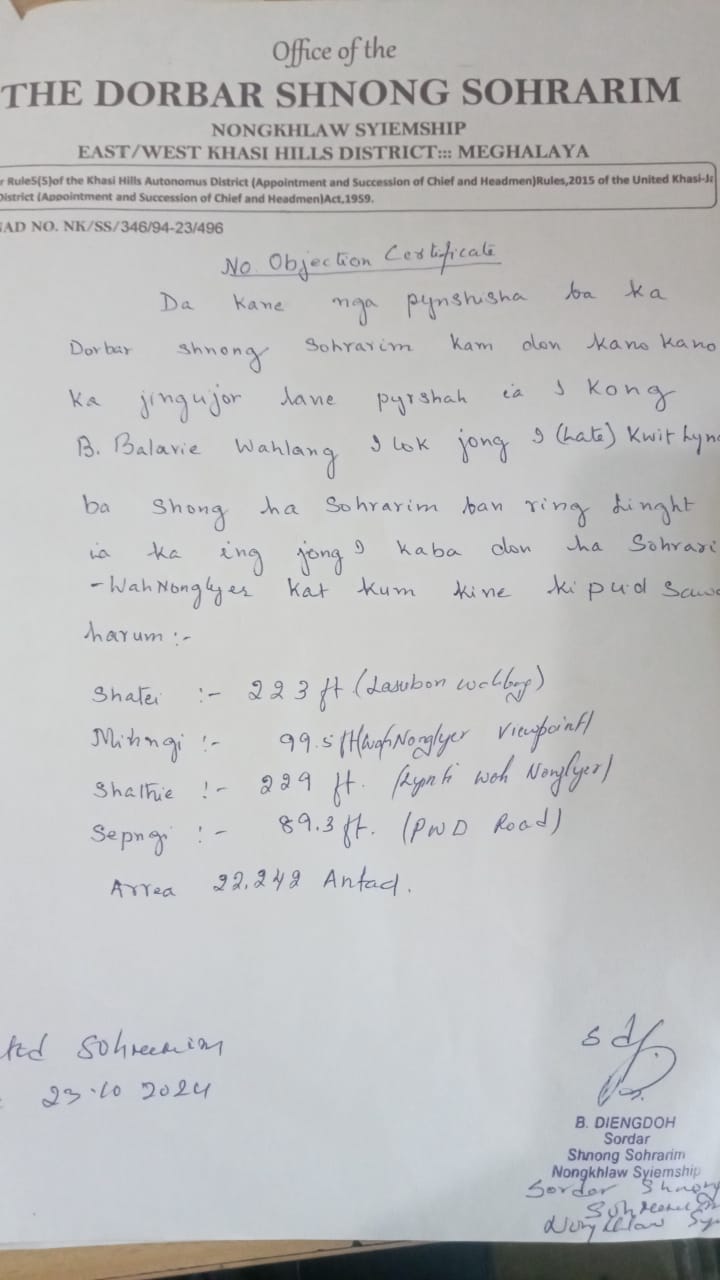 Office of the
THE DORBAR SHNONG SOHRARIM
NONGKHLAW SYIEMSHIP
EAST/WEST KHASI HILLS DISTRICT::: MEGHALAYA
r Rule5(5)of the Khasi Hills Autonomus District (Appointment and Succession of Chief and Headmen)Rules,2015 of the United Khasi-Ja
District (Appointment and Succession of Chief and Headmen)Act,1959.
AD NO. NK/SS/346/94-23/496
No Objection Certificate
Da kane nga pynshisha ba ka
Dorbar shnong Sohrarim kam don kano kano
ka jingujor lane pyrshah ia I kong
B. Balarie Wahlang I lok jong I (Late) Kwit Lyn
ba shong ha Sohrarim ban ring
ia ka ing jong I kaba don ha Sohrari
-WahNonglyer kat kum kine ki pud Saw
harum :-
Shatei :- 223 ft
Mihngi :- 99.5 ft (WahNonglyer Viewpoint)
Shathie :- 229 ft. (Kynti Woh Nonglyer)
Sepngi :- 89.3 ft. (PWD Road)
Arrea 22,242
ted Sohrarim
23.10 2024
Sd/
B. DIENGDOH
Sordar
Shnong Sohrarim
Nongkhlaw Syiemship
Sordar Shnong
Nongkhlaw Sy